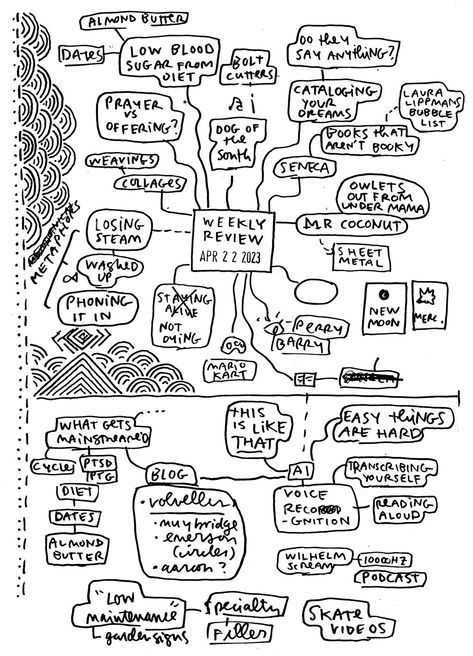 ALMOND BUTTER
DATES
LOW BLOOD
SUGAR FROM
DIET
BOLT
CUTTERS
DO they
SAY ANYTHING?
CATALOGING
YOUR
DREAMS
LAURA
LIPPMANS
BUBBLE
LIST
PRAYER
VS
OFFERING?
DOG OF
the
SOUTH
BOOKS that
AREN'T BOOKY
WEAVINGS
COLLAGES
SENECA
OWLETS
OUT FROM
UNDER MAMA
METAPHORS
LOSING
STEAM
WEEKLY
REVIEW
APR 22 2023
MR COCONUT
SHEET
METAL
WASHED
UP
PHONING
IT IN
STAYING
ALIVE
NOT
DYING
PERRY
BARRY
NEW
MOON
MERC.
MARIO
KART
WHAT GETS
MAINSTREAMED
THIS
IS LIKE
THAT
EASY thINGS
ARE HARD
CYCLE
PTSD
PTG
DIET
DATES
ALMOND
BUTTER
BLOG
• volvelles
• muybridge
• emerson
(circles)
• aaron?
AI
VOICE
RECOGNITION
TRANSCRIBING
YOURSELF
READING
ALOUD
WILHELM
SCREAM
10000HZ
PODCAST
"LOW
maintenance"
garden signs
Specialty
Filler
SKATE
VIDEOS